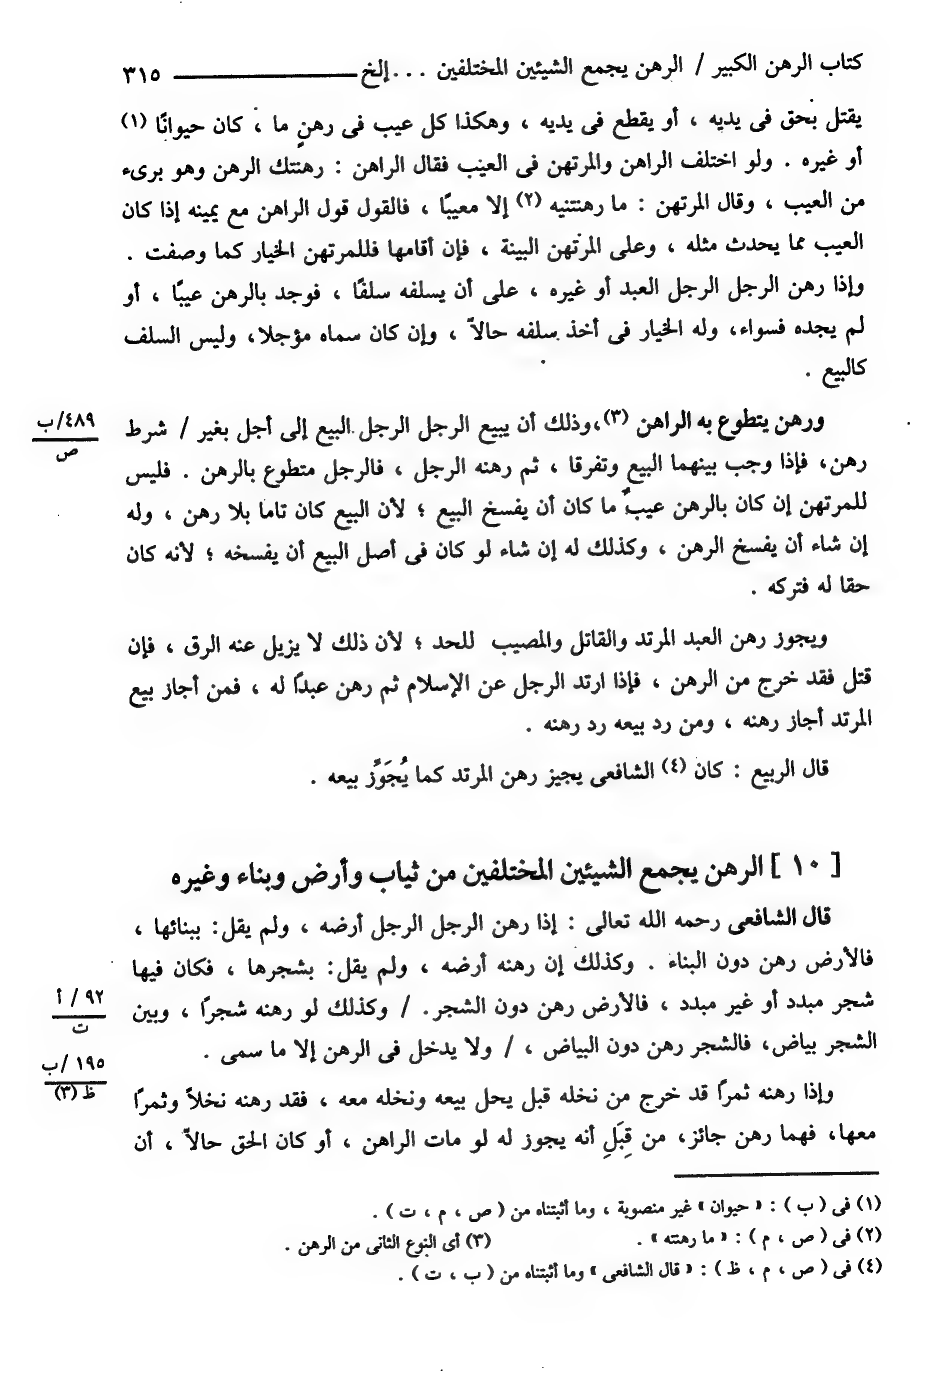 كتاب الرهن الكبير / الرهن يجمع الشيئين المختلفين . . . إلخ ـــــــــــــ ٣١٥
يقتل بحق فى يديه ، أو يقطع فى يديه ، وهكذا كل عيب فى رهنٍ ما ، كان حيوانًا (١)
أو غيره . ولو اختلف الراهن والمرتهن فى العيب فقال الراهن : رهنتك الرهن وهو برىء
من العيب ، وقال المرتهن : ما رهنتنيه (٢) إلا معيبًا ، فالقول قول الراهن مع يمينه إذا كان
العيب مما يحدث مثله ، وعلى المرتهن البينة ، فإن أقامها فللمرتهن الخيار كما وصفت .
وإذا رهن الرجل الرجل العبد أو غيره ، على أن يسلفه سلفًا ، فوجد بالرهن عيبًا ، أو
لم يجده فسواء، وله الخيار فى أخذ سلفه حالاً ، وإن كان سماه مؤجلا، وليس السلف
كالبيع .
ورهن يتطوع به الراهن (٣)،وذلك أن يبيع الرجل الرجل البيع إلى أجل بغير / شرط
٤٨٩/ب
ص
رهن، فإذا وجب بينهما البيع وتفرقا ، ثم رهنه الرجل ، فالرجل متطوع بالرهن . فليس
للمرتهن إن كان بالرهن عيبٌ ما كان أن يفسخ البيع ؛ لأن البيع كان تاما بلا رهن ، وله
إن شاء أن يفسخ الرهن ، وكذلك له إن شاء لو كان فى أصل البيع أن يفسخه ؛ لأنه كان
حقا له فتركه .
ويجوز رهن العبد المرتد والقاتل والمصيب للحد ؛ لأن ذلك لا يزيل عنه الرق ، فإن
قتل فقد خرج من الرهن ، فإذا ارتد الرجل عن الإسلام ثم رهن عبدًا له ، فمن أجاز بيع
المرتد أجاز رهنه ، ومن رد بيعه رد رهنه .
قال الربيع : كان (٤) الشافعى يجيز رهن المرتد كما يُجَوِّز بيعه .
[ ١٠ ] الرهن يجمع الشيئين المختلفين من ثياب وأرض وبناء وغيره
قال الشافعى رحمه الله تعالى : إذا رهن الرجل الرجل أرضه ، ولم يقل: ببنائها ،
فالأرض رهن دون البناء . وكذلك إن رهنه أرضه ، ولم يقل: بشجرها ، فكان فيها
شجر مبدد أو غير مبدد ، فالأرض رهن دون الشجر. / وكذلك لو رهنه شجرًا ، وبين
٩٢ / أ
ت
الشجر بياض، فالشجر رهن دون البياض ، / ولا يدخل فى الرهن إلا ما سمى .
١٩٥ /ب
ظ (٣)
وإذا رهنه ثمرًا قد خرج من نخله قبل يحل بيعه ونخله معه ، فقد رهنه نخلاً وثمرًا
معها، فهما رهن جائز، من قِبَلِ أنه يجوز له لو مات الراهن ، أو كان الحق حالاً ، أن
(١) فى ( ب ) : « حيوان » غير منصوبة ، وما أثبتناه من ( ص ، م ، ت ) .
(٢) فى ( ص ، م ) : « ما رهنته » . (٣) أى النوع الثانى من الرهن .
(٤) فى ( ص ، م ، ظ ) : « قال الشافعى » وما أثبتناه من ( ب ، ت ) .